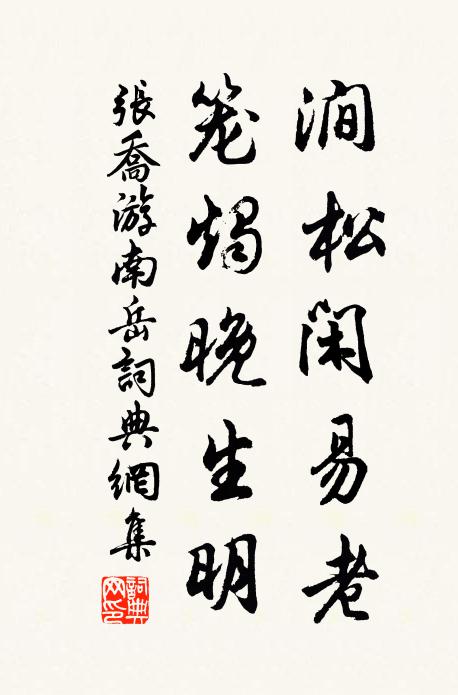 澗松閑易老
笼燭晚生明
張喬游南岳詞典網集
詞典网印